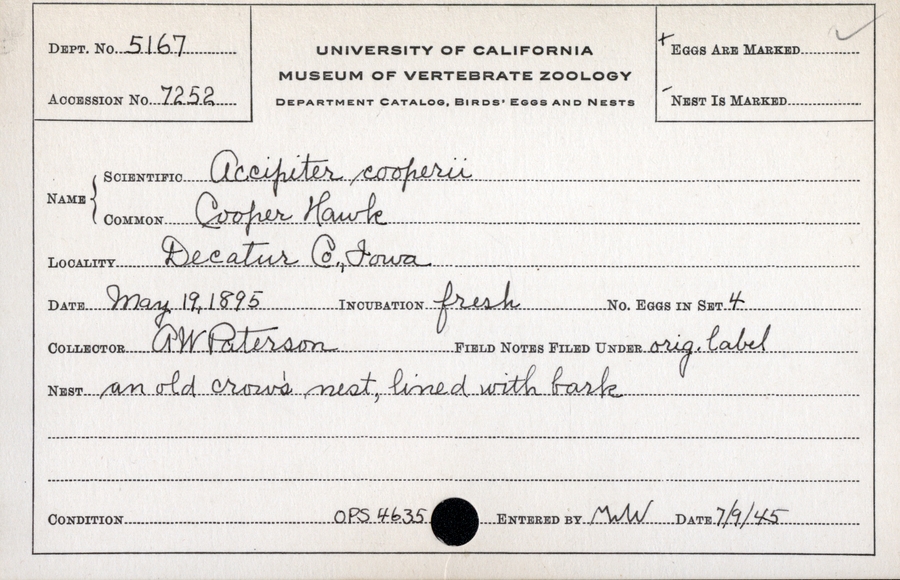 DEPT. NO. 5167
ACCESSION NO. 7252
UNIVERSITY OF CALIFORNIA
MUSEUM OF VERTEBRATE ZOOLOGY
DEPARTMENT CATALOG, BIRDS' EGGS AND NESTS
+ EGGS ARE MARKED ✓
- NEST IS MARKED
NAME { SCIENTIFIC Accipiter cooperii
COMMON Cooper Hawk
LOCALITY Decatur Co., Iowa
DATE May 19, 1895 INCUBATION fresh NO. EGGS IN SET 4
COLLECTOR AW Paterson FIELD NOTES FILED UNDER orig. label
NEST an old crow's nest, lined with bark
CONDITION OPS 4635 ENTERED BY MWW DATE 7/9/45